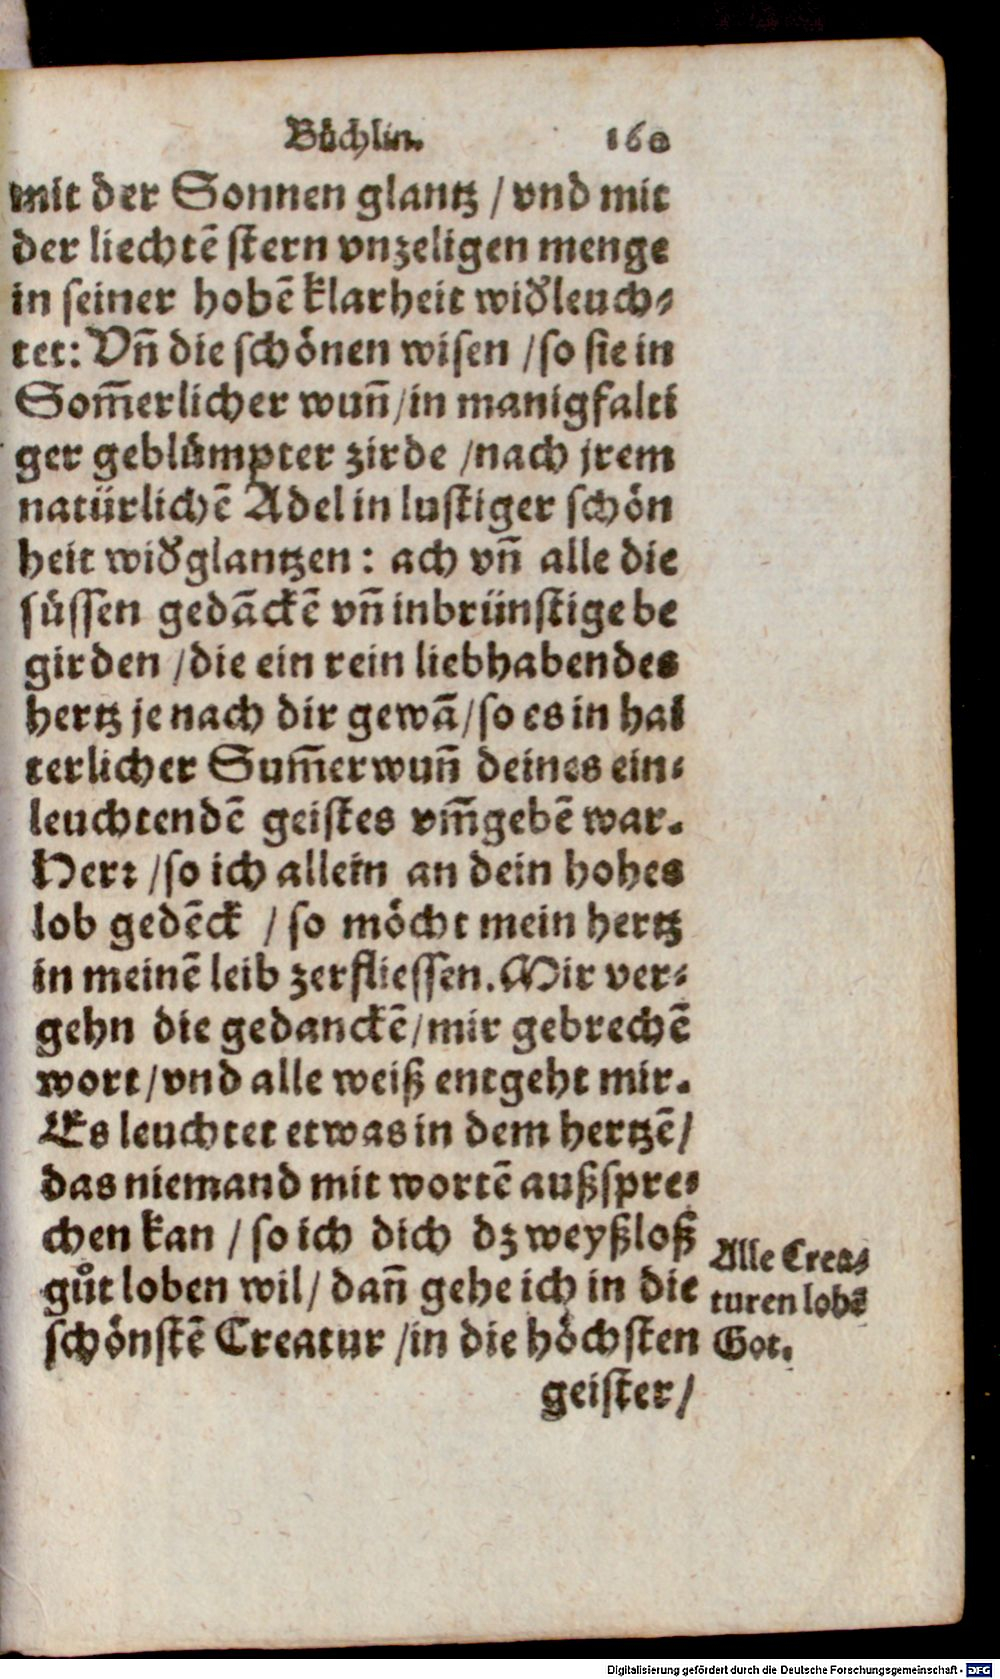 Bůchlin. 160
mit der Sonnen glantz / vnd mit
der liechtē stern vnzeligen menge
in seiner hohē klarheit widȝleuch⸗
tet: Vn̄ die schönen wisen / so sie in
Som̄erlicher wun̄ / in manigfalti
ger geblůmpter zirde / nach jrem
natürlichē Adel in lustiger schön
heit widȝglantzen: ach vn̄ alle die
süssen gedāckē vn̄ inbrünstige be
girden / die ein rein liebhabendes
hertz je nach dir gewā / so es in hai
terlicher Sum̄erwun̄ deines ein⸗
leuchtendē geistes vm̄gebē war.
Herr / so ich allein an dein hohes
lob gedēck / so möcht mein hertz
in meinē leib zerfliessen. Mir ver⸗
gehn die gedanckē / mir gebrechē
wort / vnd alle weiß entgeht mir.
Es leuchtet etwas in dem hertzē /
das niemand mit wortē außspre⸗
chen kan / so ich dich dz weyßloß
gůt loben wil / dan̄ gehe ich in die
schönstē Creatur / in die höchsten
geister /
Alle Crea⸗
turen lobē
Got.
Digitalisierung gefördert durch die Deutsche Forschungsgemeinschaft - DFG